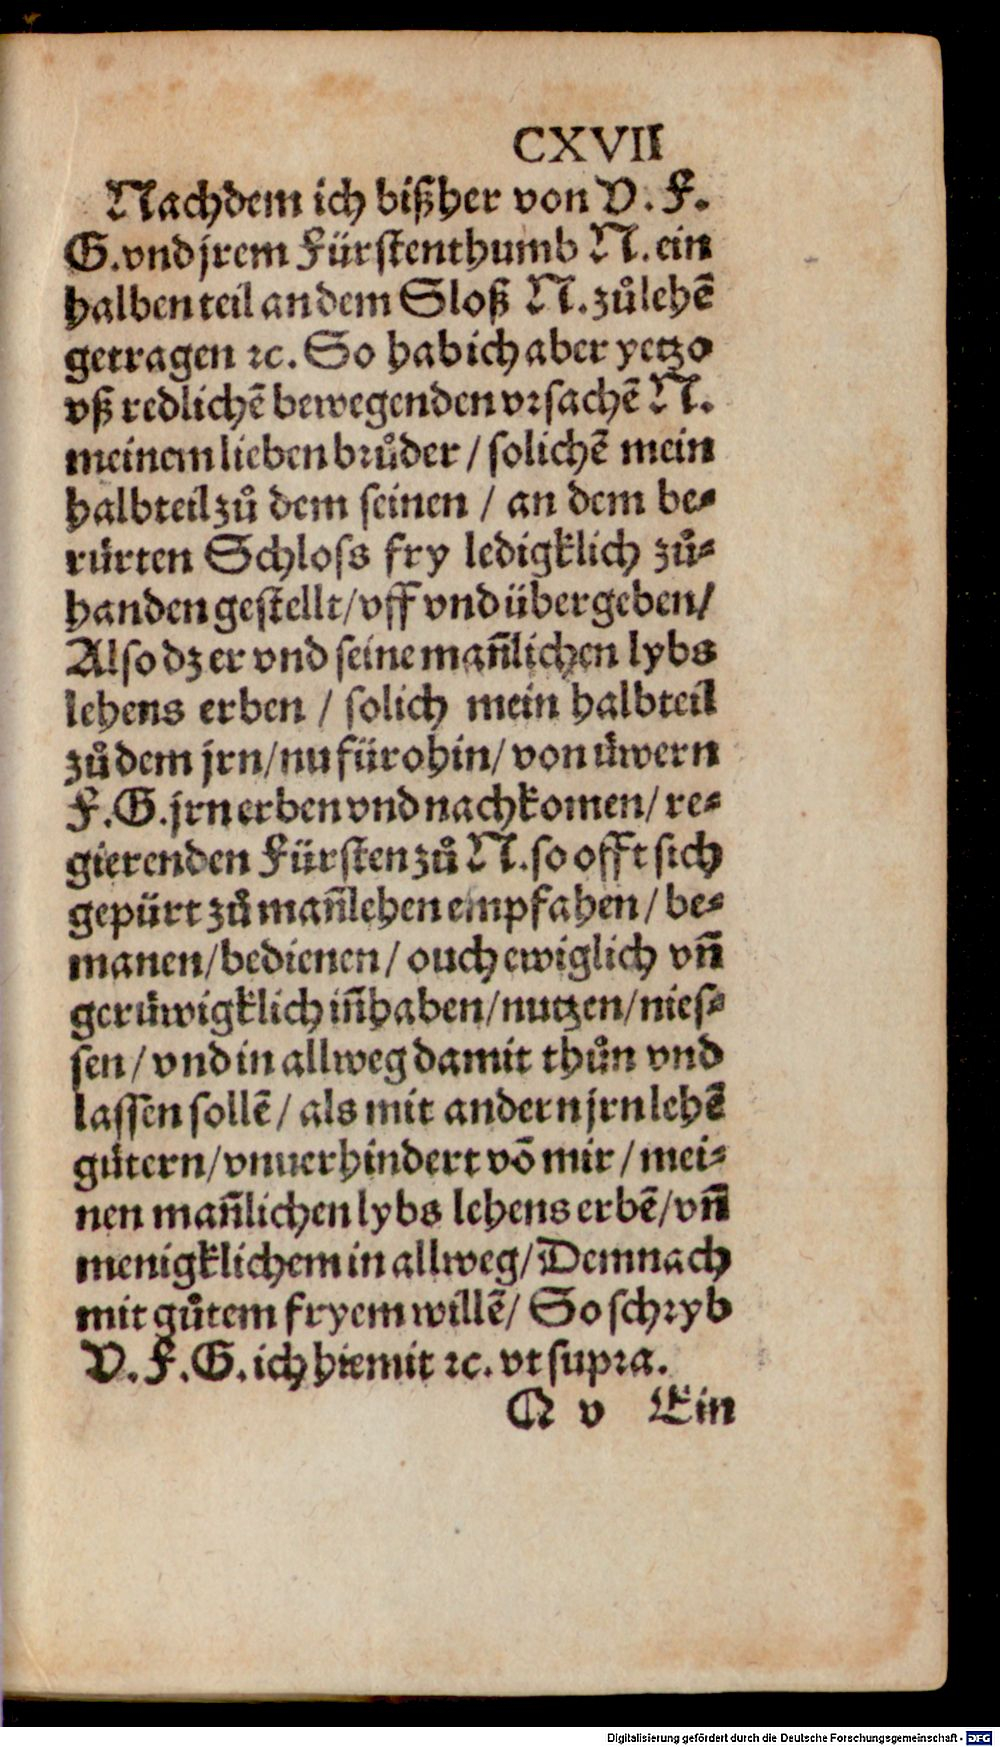 CXVII
Nachdem ich bißher von V. F.
G. vnd jrem Fürstenthumb N. ein
halben teil an dem Sloß N. zůlehẽ
getragen ꝛc. So hab ich aber yetzo
vß redlichẽ bewegenden vꝛsachẽ N.
meinem lieben bꝛůder / solichẽ mein
halbteil zů dem seinen / an dem be⸗
rürten Schloss fry ledigklich zů⸗
handen gestellt/ vff vnd übergeben/
Also dz er vnd seine mañlichen lybs
lehens erben / solich mein halbteil
zů dem jrn/ nu fürohin/ von üwern
F. G. jrn erben vnd nachkomen/ re⸗
gierenden Fürsten zů N. so offt sich
gepürt zů mañlehen empfahen/ be⸗
manen/ bedienen/ ouch ewiglich vñ
gerüwigklich iñhaben/ nutzen/ nies⸗
sen/ vnd in allweg damit thůn vnd
lassen sollẽ/ als mit andern jrn lehẽ
gütern/ vnuerhindert võ mir/ mei⸗
nen mañlichen lybs lehens erbẽ/ vñ
menigklichem in allweg/ Demnach
mit gůtem fryem willẽ/ So schꝛyb
V. F. G. ich hiemit ꝛc. vt supꝛa.
Q v Ein
Digitalisierung gefördert durch die Deutsche Forschungsgemeinschaft - DFG